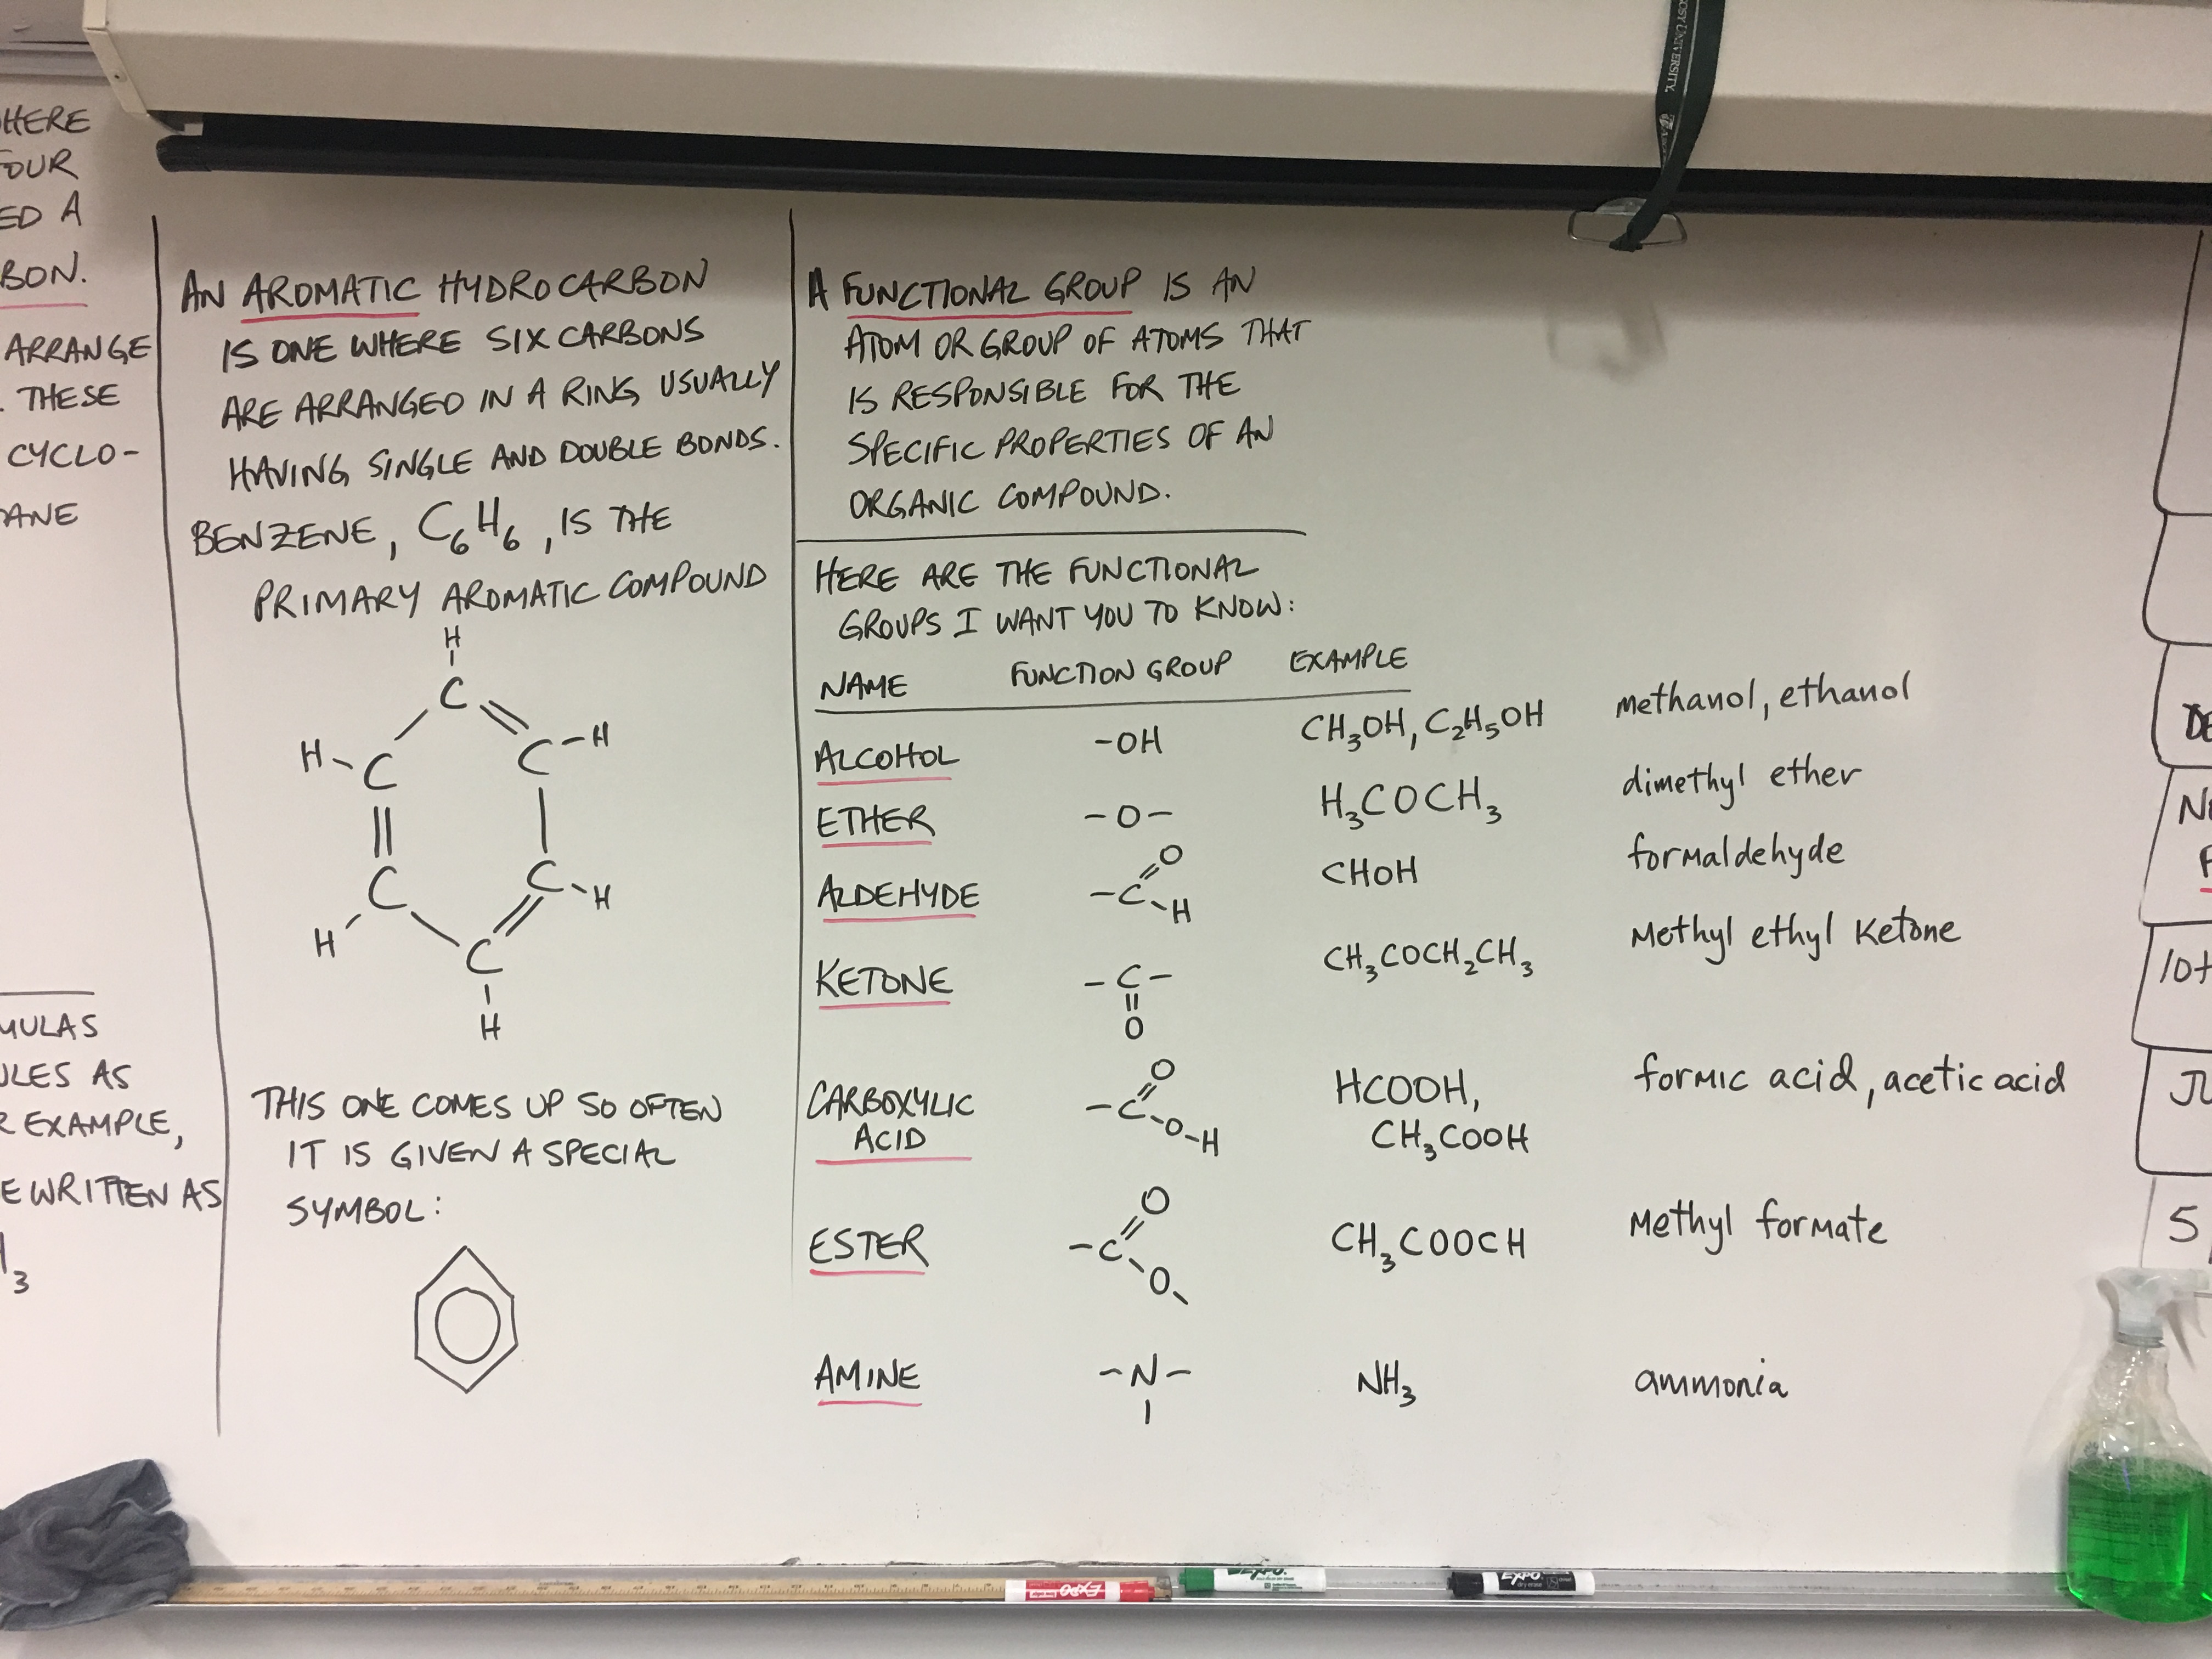 OSY UNIVERSITY.
HERE
FOUR
ED A
BON.
ARRANGE
. THESE
CYCLO-
ANE
MULAS
ULES AS
R EXAMPLE,
E WRITTEN AS
H₃
AN AROMATIC HYDROCARBON
IS ONE WHERE SIX CARBONS
ARE ARRANGED IN A RING USUALLY
HAVING SINGLE AND DOUBLE BONDS.
BENZENE, C₆H₆, IS THE
PRIMARY AROMATIC COMPOUND
H
C
H C C H
H C C H
C
H
THIS ONE COMES UP SO OFTEN
IT IS GIVEN A SPECIAL
SYMBOL:
A FUNCTIONAL GROUP IS AN
ATOM OR GROUP OF ATOMS THAT
IS RESPONSIBLE FOR THE
SPECIFIC PROPERTIES OF AN
ORGANIC COMPOUND.
HERE ARE THE FUNCTIONAL
GROUPS I WANT YOU TO KNOW:
NAME FUNCTION GROUP EXAMPLE
ALCOHOL -OH CH₃OH, C₂H₅OH methanol, ethanol
ETHER -O- H₃COCH₃ dimethyl ether
O
ALDEHYDE -C-H CHOH formaldehyde
KETONE -C- CH₃COCH₂CH₃ Methyl ethyl Ketone
O
O
CARBOXYLIC -C HCOOH, formic acid, acetic acid
ACID O-H CH₃COOH
O
ESTER -C CH₃COOCH Methyl formate
O
AMINE -N- NH₃ ammonia
10+
5
EXPO
EXPO
EXPO